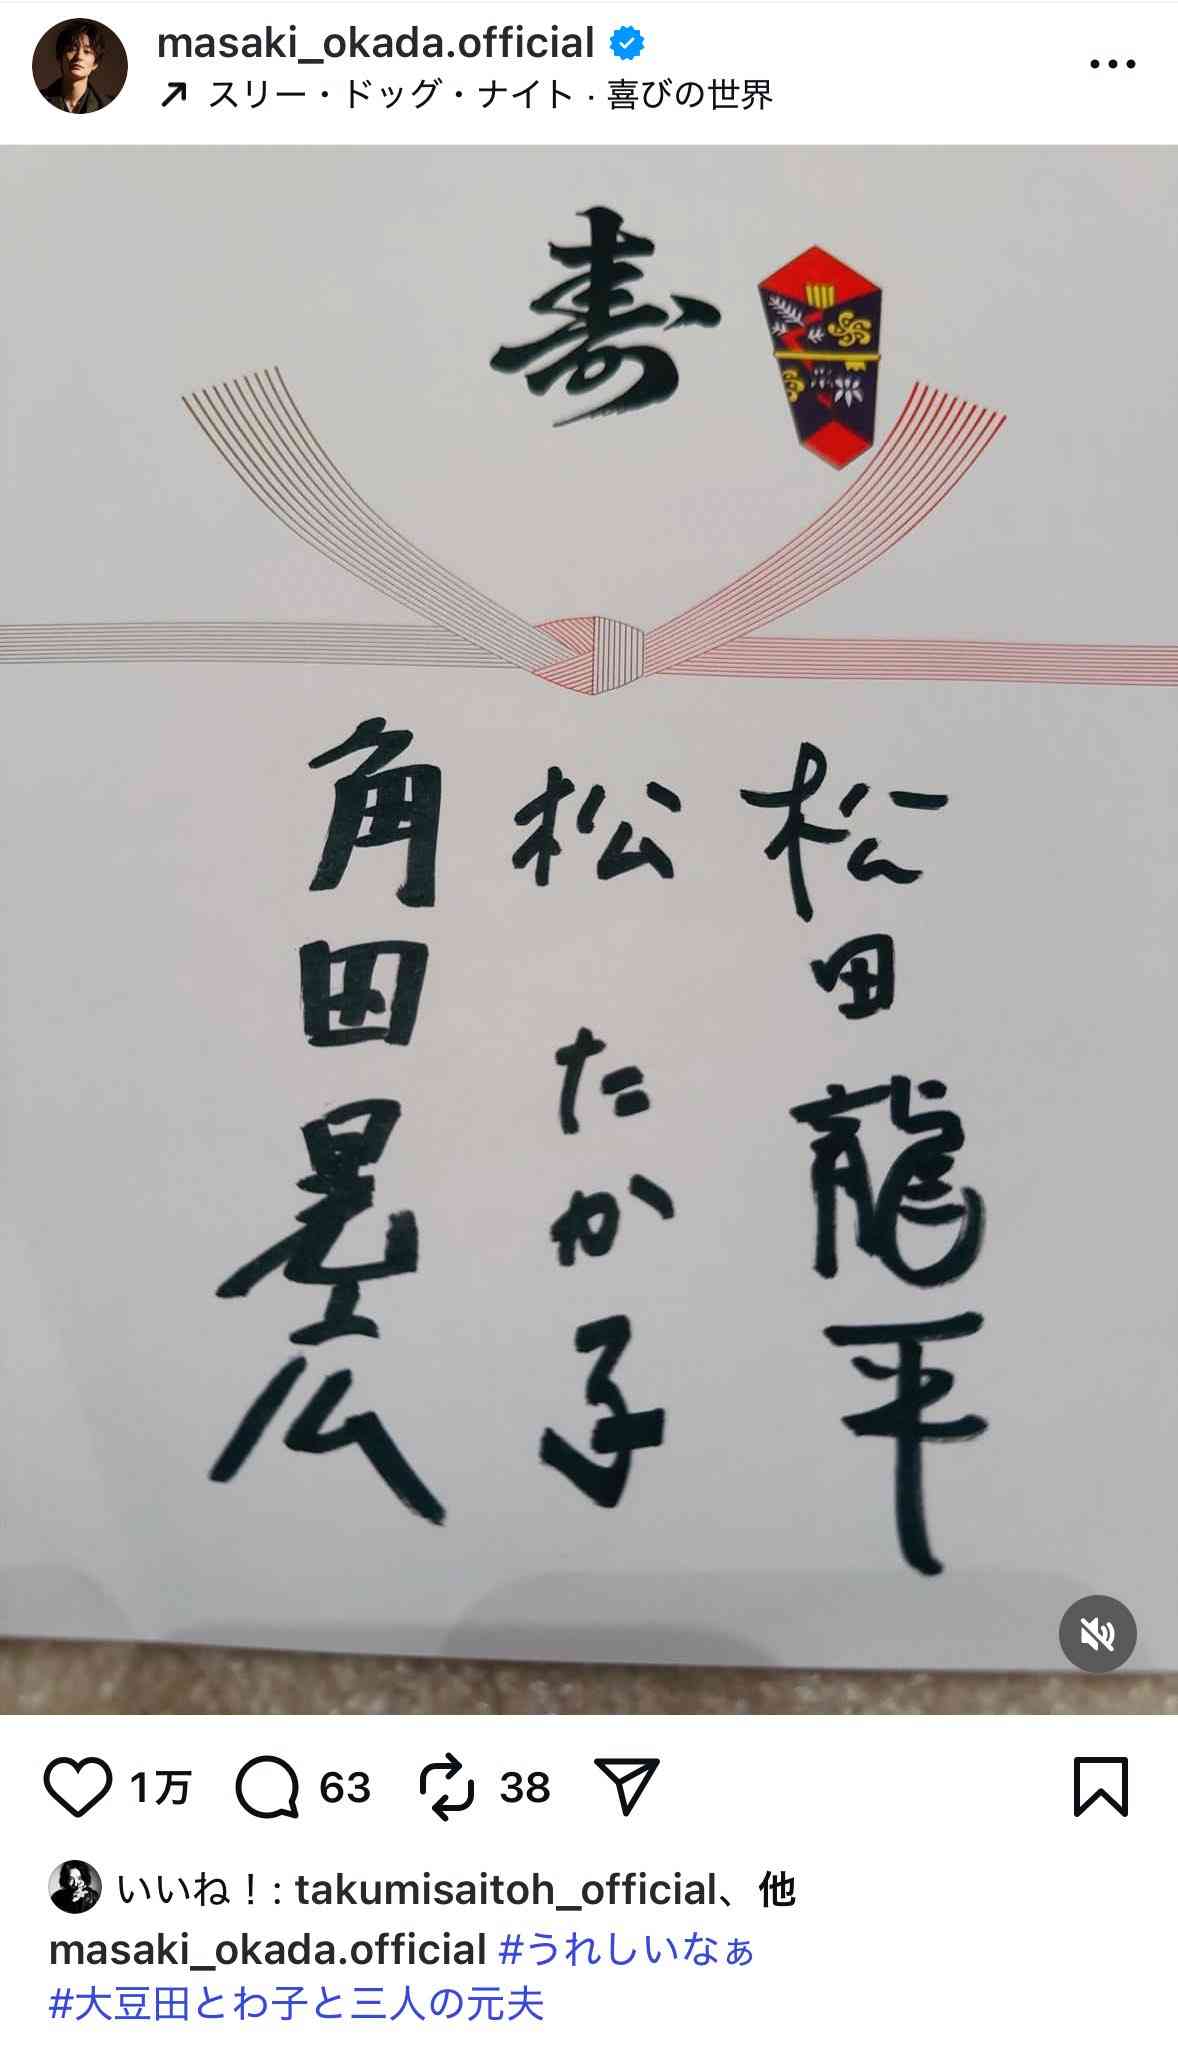 masaki_okada.official
スリー・ドッグ・ナイト・喜びの世界
寿
松田龍平
松たか子
角田晃広
1万 63 38
いいね！: takumisaitoh_official、他
masaki_okada.official #うれしいなぁ
#大豆田とわ子と三人の元夫